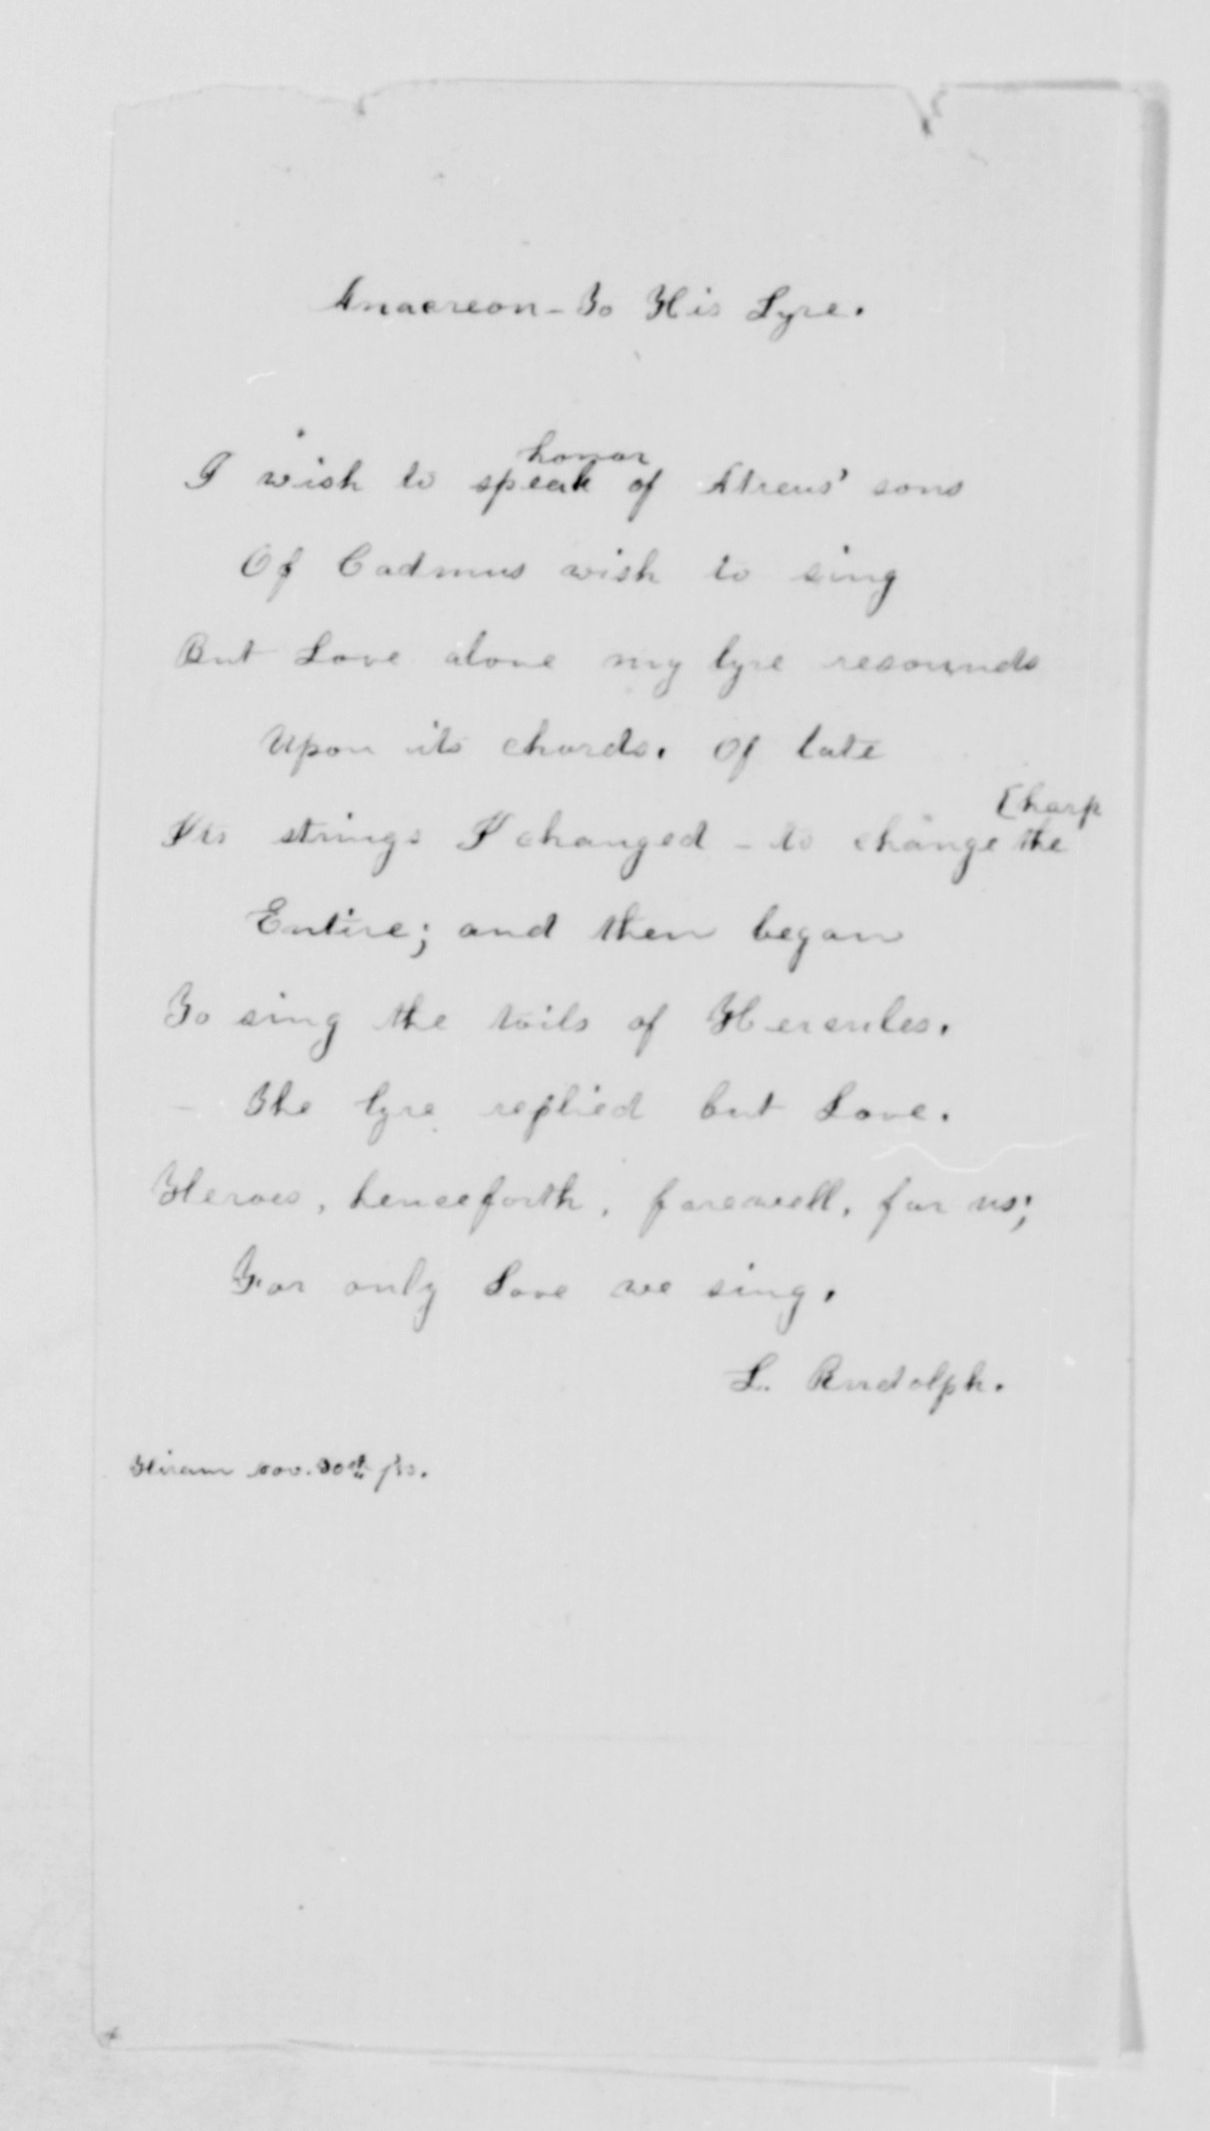 Anacreon - To His Lyre.
honor
I wish to speak of Atreus' sons
Of Cadmus wish to sing
But Love alone my lyre resounds
Upon its chords. Of late
[harp
Its strings I changed - to change the
Entire; and then began
To sing the toils of Hercules.
The lyre replied but Love.
Heroes, henceforth, farewell, for us;
For only Love we sing.
L. Rudolph.
Hiram Nov. 30th